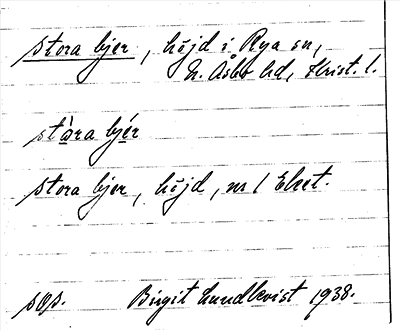 stora bjer, höjd i Rya sn,
N. Åsbo hd, Krist. l.
stòra bjér
stora bjer, höjd, nr 1 Eket.
sop. Birgit Lundkvist 1938.